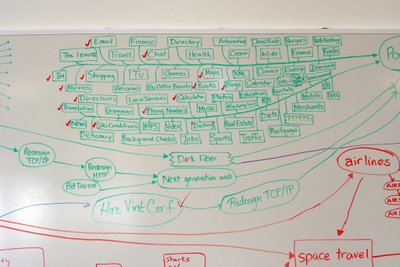 Email Finance Directory Automotive Classifieds Recipes
Tea leaves Travel Chat Health Casino Kids Finance Feeds
IM Shopping TV Games Maps
Movies Reviews Bulletin Boards Books Blogs Calendar
Directions Local Services Calculator Photos Education
Translation Grammar Phone Numbers Music Marketplace Merchants
News Ski Conditions MP3 Video Dating Real Estate Diets ???????
Dictionary Background Checks Jobs Sports Traffic Mortgage
Po
Redesign
TCP/IP
Dark Fiber
airlines
Redesign
HTTP
Next generation web
BitTorrent
Hire Vint Cerf
Redesign TCP/IP
space travel
Sharks